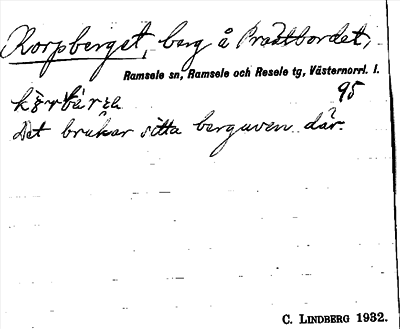 Korpberget, berg å Prästbordet,
Ramsele sn, Ramsele och Resele tg, Västernorrl. l.
95
Det brukar sitta berguven där.
C. LINDBERG 1932.